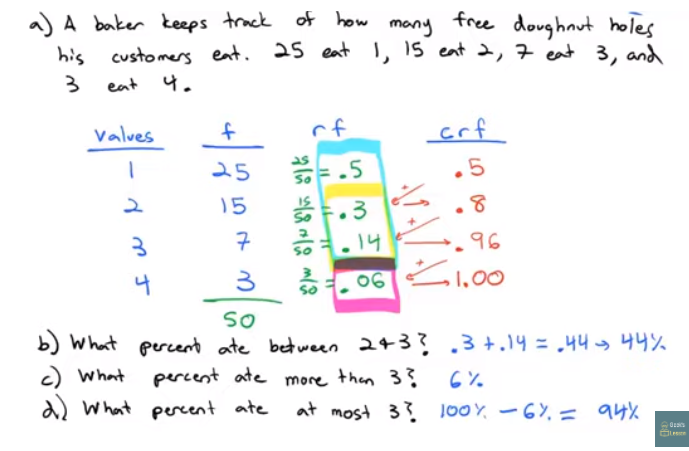 a) A baker keeps track of how many free doughnut holes
his customers eat. 25 eat 1, 15 eat 2, 7 eat 3, and
3 eat 4.
values f rf crf
1 25 25/50 = .5 .5
2 15 15/50 = .3 + .8
3 7 7/50 = .14 + .96
4 3 3/50 = .06 + 1.00
50
b) What percent ate between 2 & 3? .3 + .14 = .44 → 44%
c) What percent ate more than 3? 6%
d) What percent ate at most 3? 100% - 6% = 94%